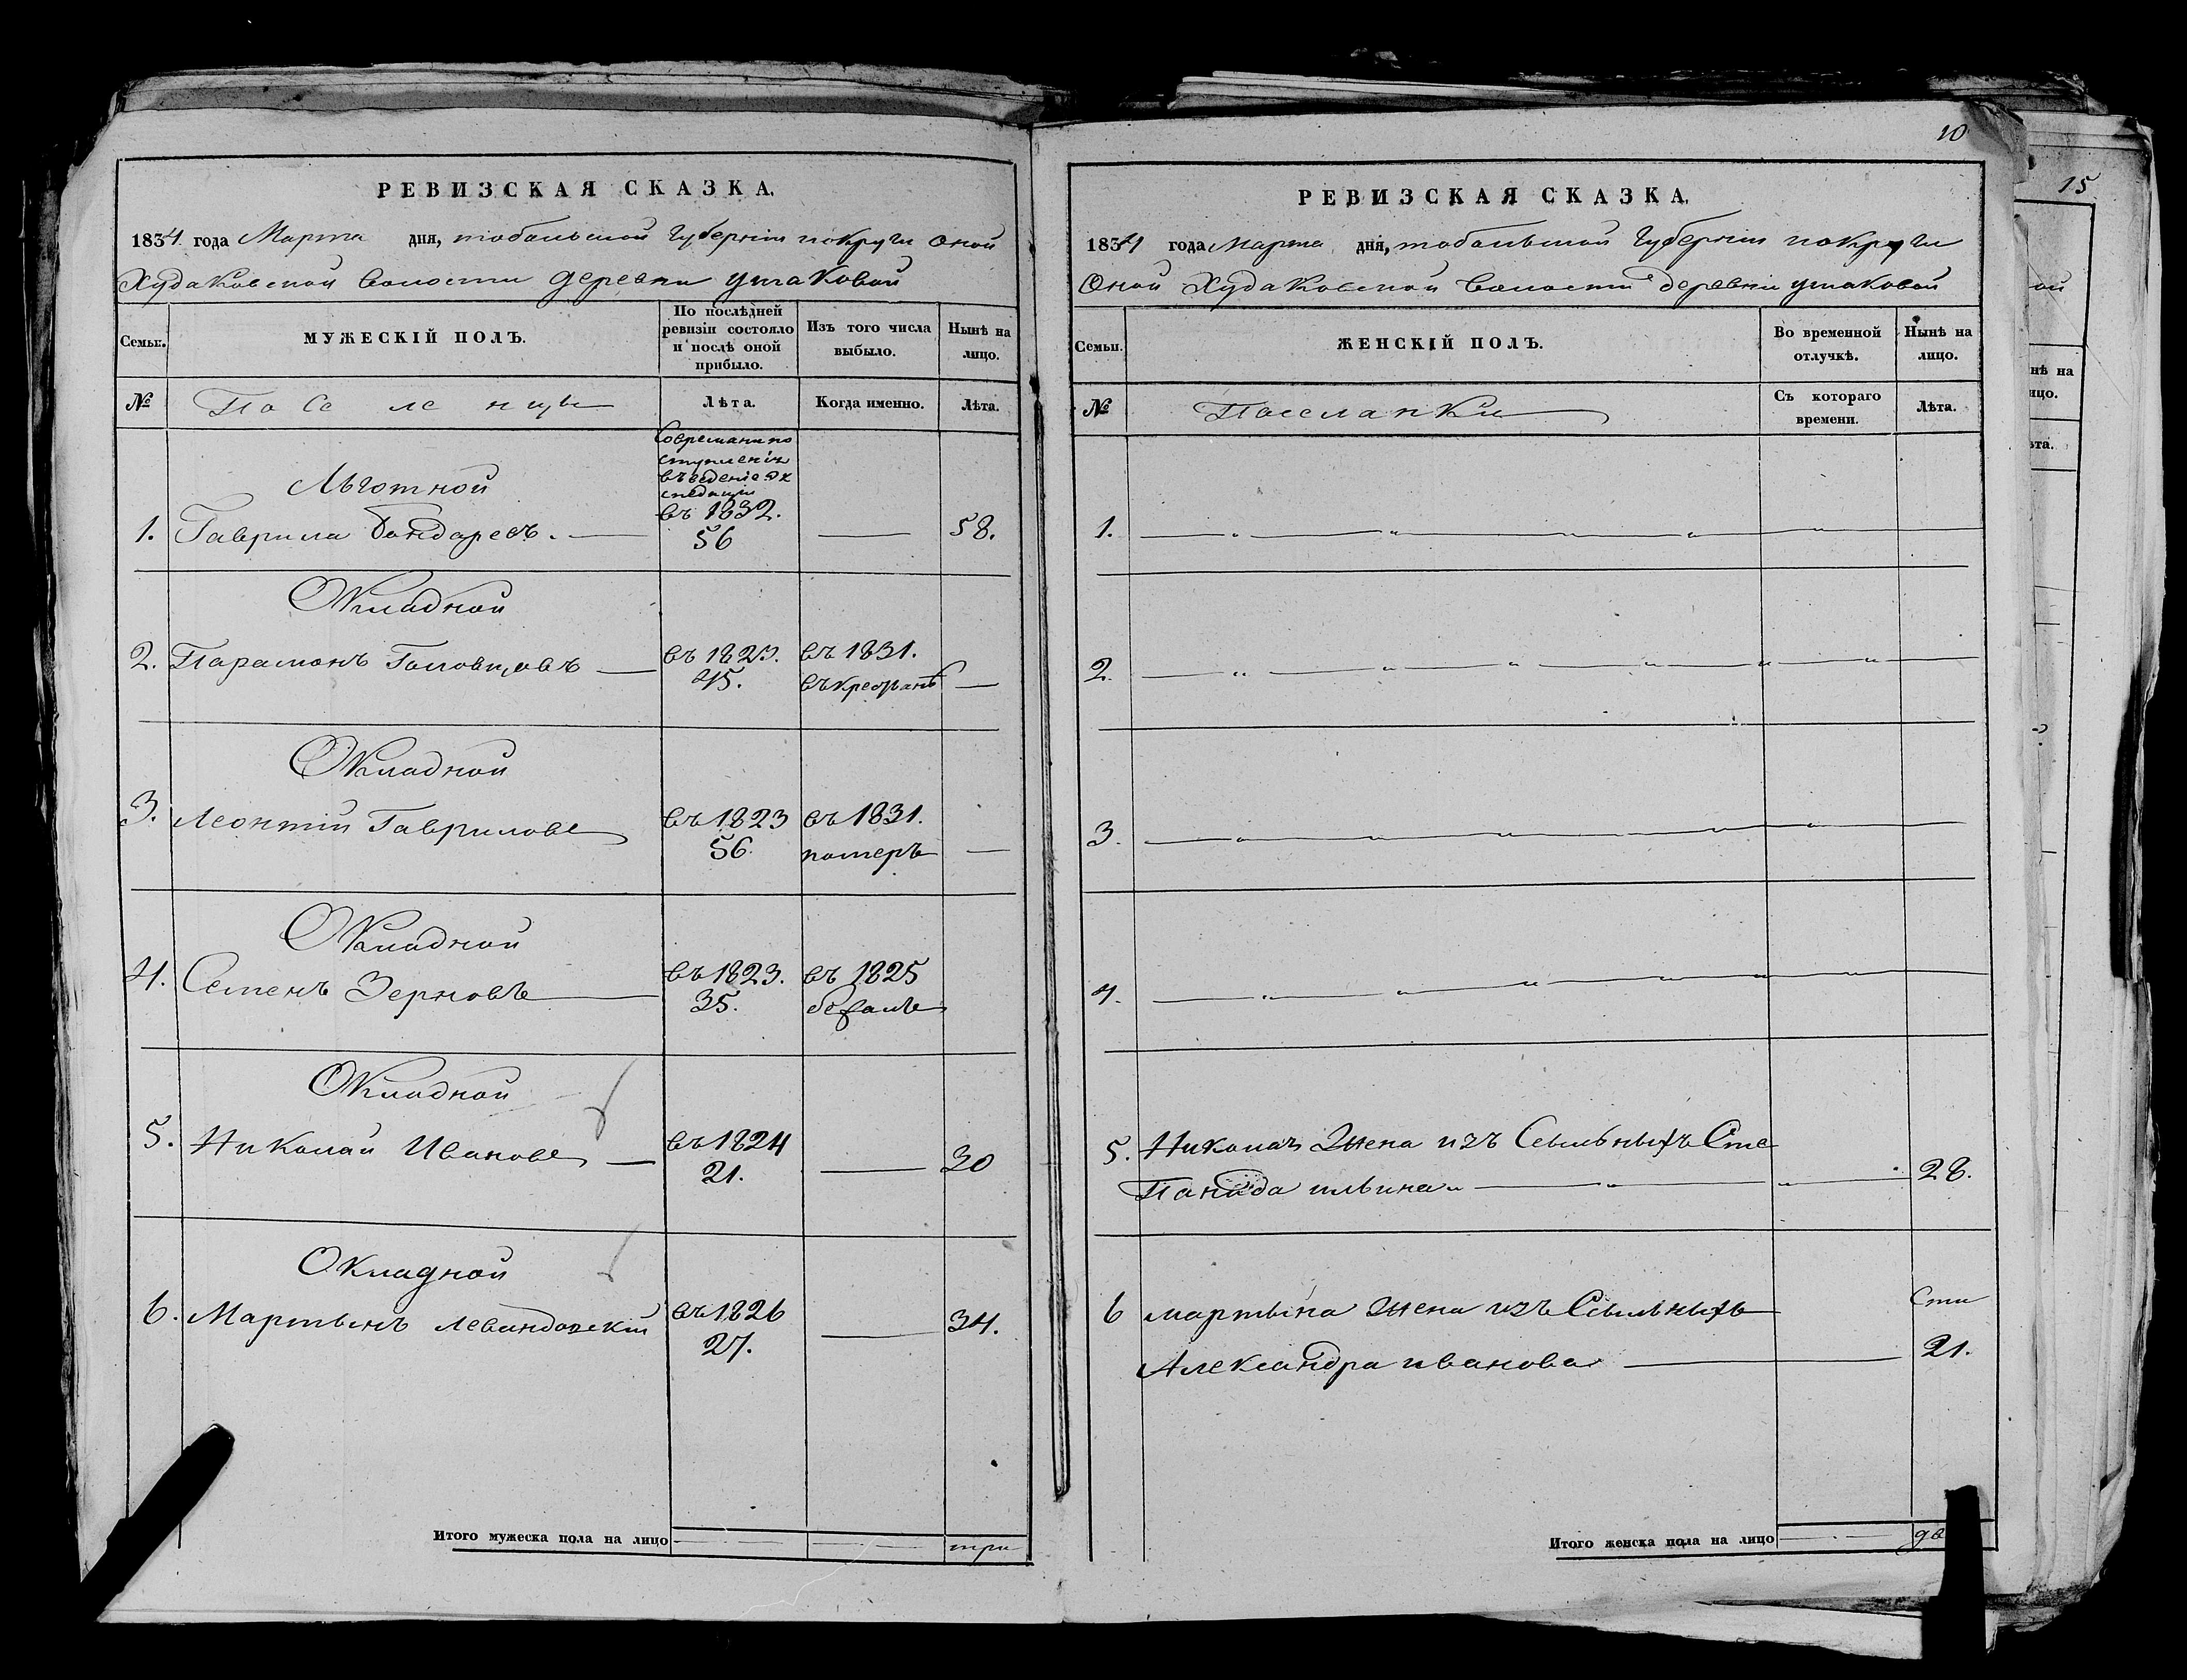 РЕВИЗСКАЯ СКАЗКА.
1834 года Марта дня, тобольской губернии и округи оной
Худаковской волости деревни ушаковой
Семьи.
МУЖЕСКІЙ ПОЛЪ.
По послѣдней
ревизіи состояло
и послѣ оной
прибыло.
Изъ того числа
выбыло.
Нынѣ на
лицо.
№
Поселенцы
Лѣта.
Когда именно.
Лѣта.
Льготной
Современи по
ступленія
въведение Эк
спедиціи
1. Гаврила Бондаревъ. въ 1832. 56 — 58.
Окладной
2. Парамонъ Головцовъ — въ 1823. въ 1831.
45. въкрестьянѣ —
Окладной
3. Леонтій Гавриловъ въ 1823 въ 1831.
56. померъ —
Окладной
4. Семенъ Зерновъ — въ 1823. въ 1825
35. бежалъ
Окладной
5. Николай Ивановъ — въ 1824
21. — 30
Окладной
6. Мартынъ Левандовскій въ 1826
27. — 34.
Итого мужеска пола на лицо — — три
10
РЕВИЗСКАЯ СКАЗКА.
1834 года Марта дня, тобольской губерніи и округи
Оной Худаковской волости деревни ушаковой
Семьи.
ЖЕНСКІЙ ПОЛЪ.
Во временной
отлучкѣ.
Нынѣ на
лицо.
№
Поселанки
Съ котораго
времени.
Лѣта.
1.
2.
3.
4.
5. Николая Жена изъ Сыльныхъ Сте
панида ильина 28.
6 мартына жена изъ Ссыльныхъ
Александра иванова 21.
Итого женска пола на лицо —
15
ой
нѣ на
ицо.
ѣта.